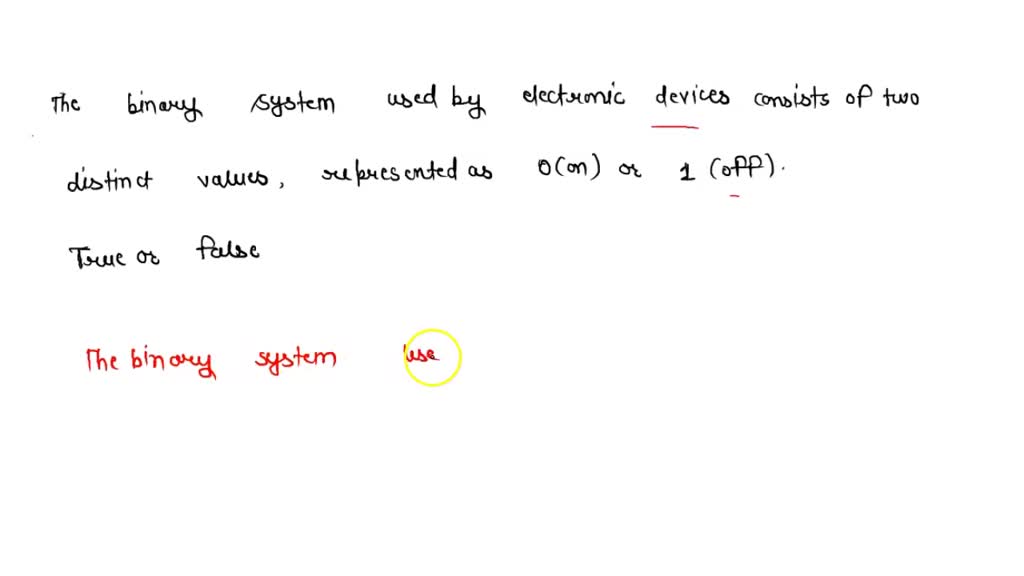 The binary system used by electronic devices consists of two
distinct values, represented as 0(on) or 1 (off).
True or false
The binary system use